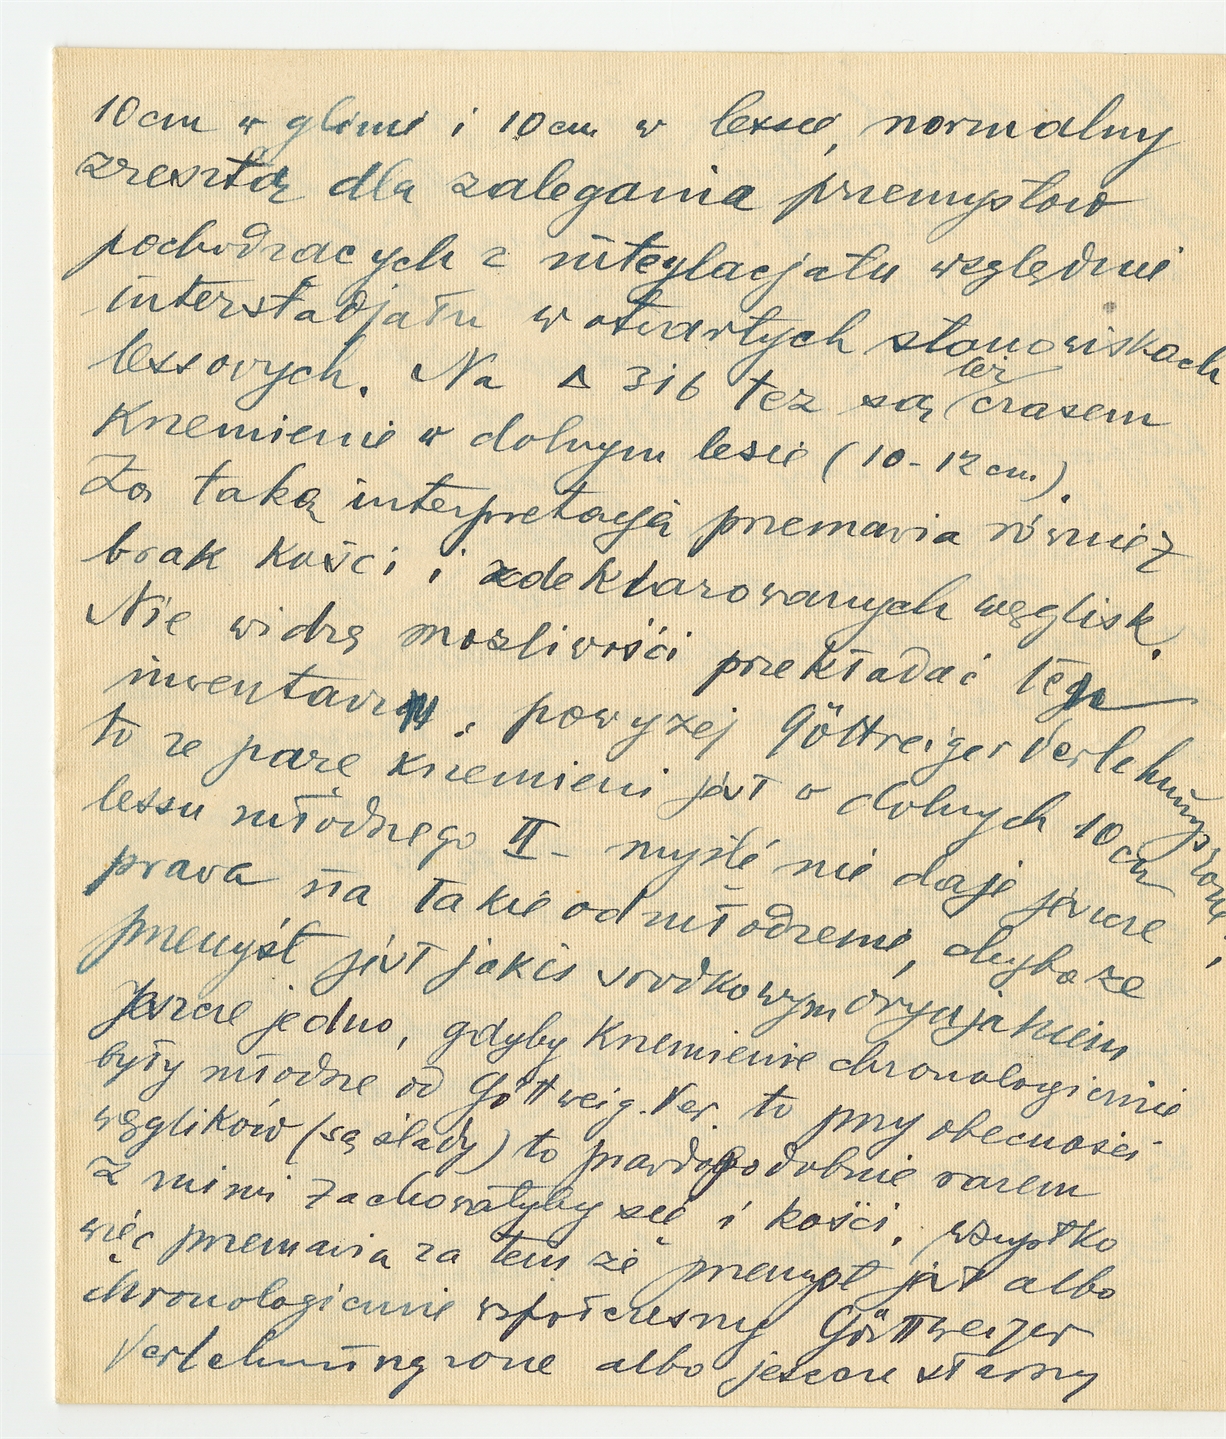 10 cm w glinie i 10 cm w lessie, normalny
zresztą dla zalegania przemysłow
pochodzacych z interglacjału względnie
interstadjału w otwartych stanowiskach
lessowych. Na △ 316 też są też czasem
Krzemienie w dolnym lesie (10-12 cm.).
Za taką interpretacją przemawia również
brak kości i zdeklarowanych węglisk.
Nie widzę mozliwości przekładać tego
inwentarza powyzej Göttweiger Verlehmungszone,
to ze parę krzemieni jest w dolnych 10 cm
lessu młodszego II - myślę nie daje jeszcze
prawa na takie odmłodzenie, chyba ze
przemysł jest jakis srodkowym oryniakiem
Jeszcze jedno, gdyby Krzemienie chronologicznie
były młodsze od Göttweig. Ver. to przy obecności
węglików (są ślady) to prawdopodobnie razem
z nimi zachowałyby się i kości. wszystko
więc przemawia za tem że przemysł jest albo
chronologicznie współczesny Göttweiger
Verlehmungzone albo jeszcze starszy